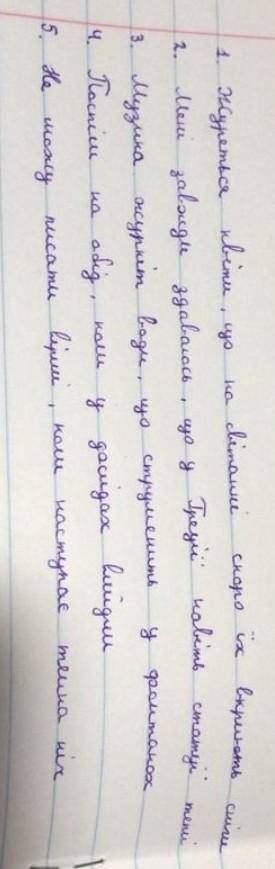 1. Журяться квіти, що на світанні скоро їх вкриють сніги
2. Мені завжди здавалось, що у Греції навіть статуї теплі
3. Музика журніт води, що струменить у фонтанах
4. Поспіли на обід, коли у дослідах вийшли
5. Не можу писати вірші, коли наступає темна ніч